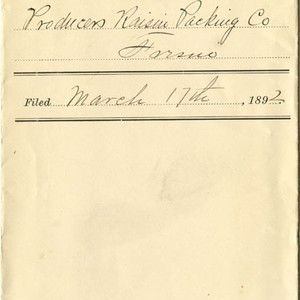 Producers Raisin Packing Co
Fresno
Filed March 17th, 1892